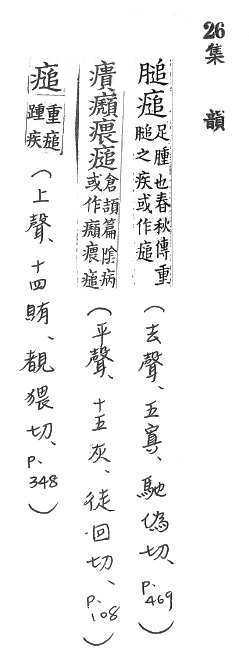 26集 韻
膇㾽足腫也春秋傳重膇之疾或作㾽(去聲、五寘、馳偽切、p.469)
㿉㿗㾯㾽倉頡篇陰病或作㿗㾯㾽(平聲、十五灰、徒回切、p.108)
㾽重㾽踵疾(上聲、十四賄、覩猥切、p.348)